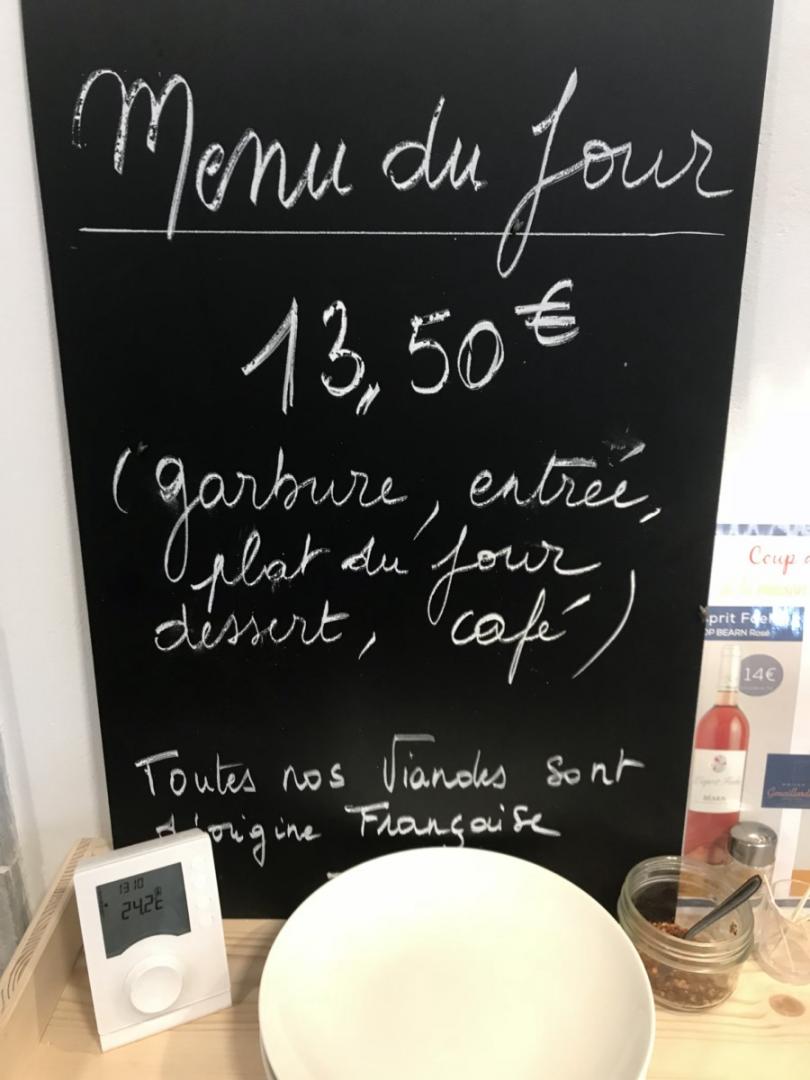 Menu du Jour
13,50€
(garbure, entrée,
plat du jour
dessert, café)
Toutes nos Viandes sont
d'origine Française
13 10
24.2°C
Coup
prit Fée
OP BEARN Rosé
14€
BÉARN